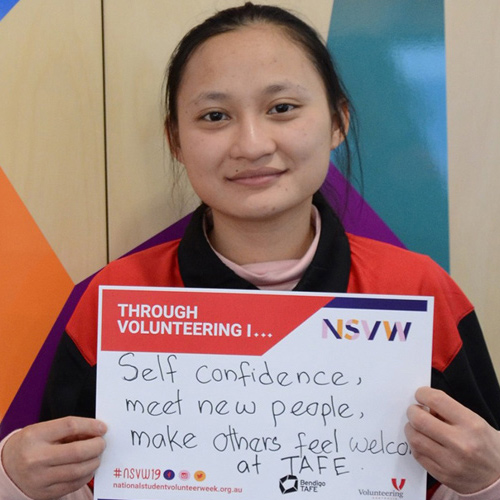 THROUGH
VOLUNTEERING I...
NSVW
Self confidence,
meet new people,
make others feel welco
at TAFE.
#nsvw19
nationalstudentvolunteerweek.org.au
Bendigo
TAFE
Volunteering